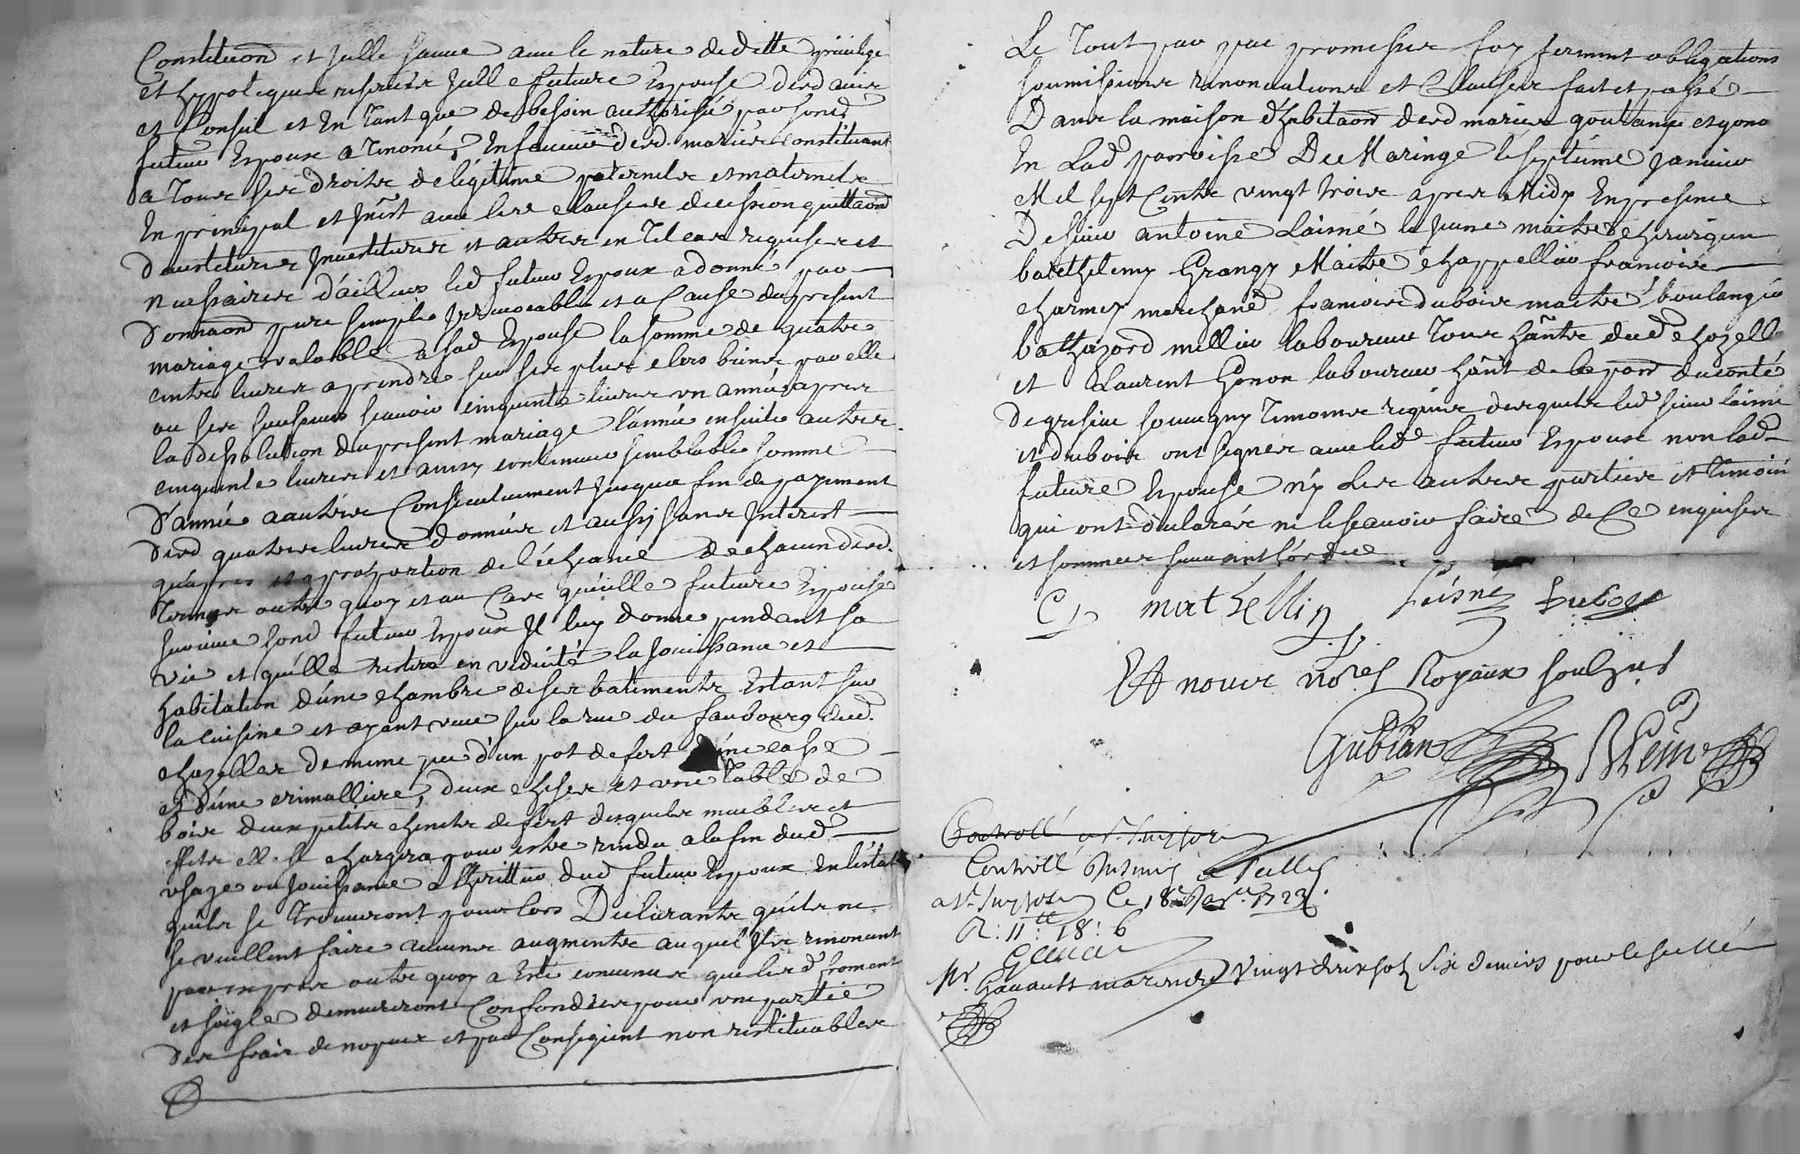 Constitution et Jcelle sauve avec le nature de dette privilege
et hypoteque reservée Jcelle future Espouse desd avis
et Conseil et En Tant que de besoin authorisée par sond
futeur Espoux a renoncé, En faveur desd. mariés constituant
a Tous ses droits de légitime paternelle et maternelle
En principal et Jnst avec les clauses de cession quittaõn
devestiture Jnvestiture et autres en Tel cas requises et
necessaires d'ailleurs led futeur Espoux a donné par
donnaõn pure simple Jrrevocable et a Cause du present
mariage valable a sad Espouse la somme de quatre
cents livres a prendre sur ses plus clers biens par elle
ou ses successeurs scavoir cinquante livres un année apres
la dissolution du present mariage l'année ensuite autres
cinquante livres et ainsy continuer semblable somme
d'année a autres Consecutivement jusqu'a fin de payement
desd quatres livres données et aussy sans Jnterest
qu'apres et a proportion de l'écheance de chacun desd.
Termes outre quoy et au Cas qu'elle future Espouse
survive sond futeur Espoux Jl luy donne pendant sa
vie et qu'elle restera en viduité la Jouissance et
habitation d'une chambre de ses batiments Estant sur
la cuisine et ayant veue sur la rue du faubourg dud.
chazelles de mesme que d'un pot de fert d'une casse
et d'une crimalliere, deux cheses et une table de
bois deux petits chenets de fert desquels meubles et
effets elle se chargera pour estre rendu a la fin dud
usage ou jouissance a l'heritier dud futeur Espoux En l'estat
qu'ils se trouveront pour lors Declarants qu'ils ne
se veullent faire aucune augmente auquel Jls renoncent
par expres outre quoy a Esté convenu que les d froment
et soigle demeureront Confondus pour une partie
des frais de nopces et par Conséquent non restituables
Le Tout par par promesses foy serment obligations
soumissions renonciations et Clauses fait et passé
Dans la maison d'habitaõn desd mariés goutange et gono
En Lad parroisse De Maringe le septieme Janvier
Mil sept Cents vingt trois apres Midy En presence
De sieur antoine Laisné le jeune maitre chirurgien
barthelemy Grangy Maitre chappellier francois
charmey marchand francois dubois maitre boulanger
balthazard millier laboureur Tous hãnts dud chazelle
et Laurent Gonon laboureur hãnt de la parr du conté
de grisieu souvigny Temoins requis desquels led sieur laisné
et dubois ont signés avec led futeur Espoux non lad
future Espouse n'y les autres parties et temoins
qui ont déclarés ne le scavoir faire de Ce enquises
et sommés suivant l'ordce
C mathellin Leisné Dubois
Et nous nores Royaux soubznes
Gubian
Controllé a St. Suphori
Controllé Insinué et scellé
a St. Suphori Ce 18e Janer. 1723.
R: 11tt: 18: 6
Mr. vingt deux sols six deniers pour le scellé